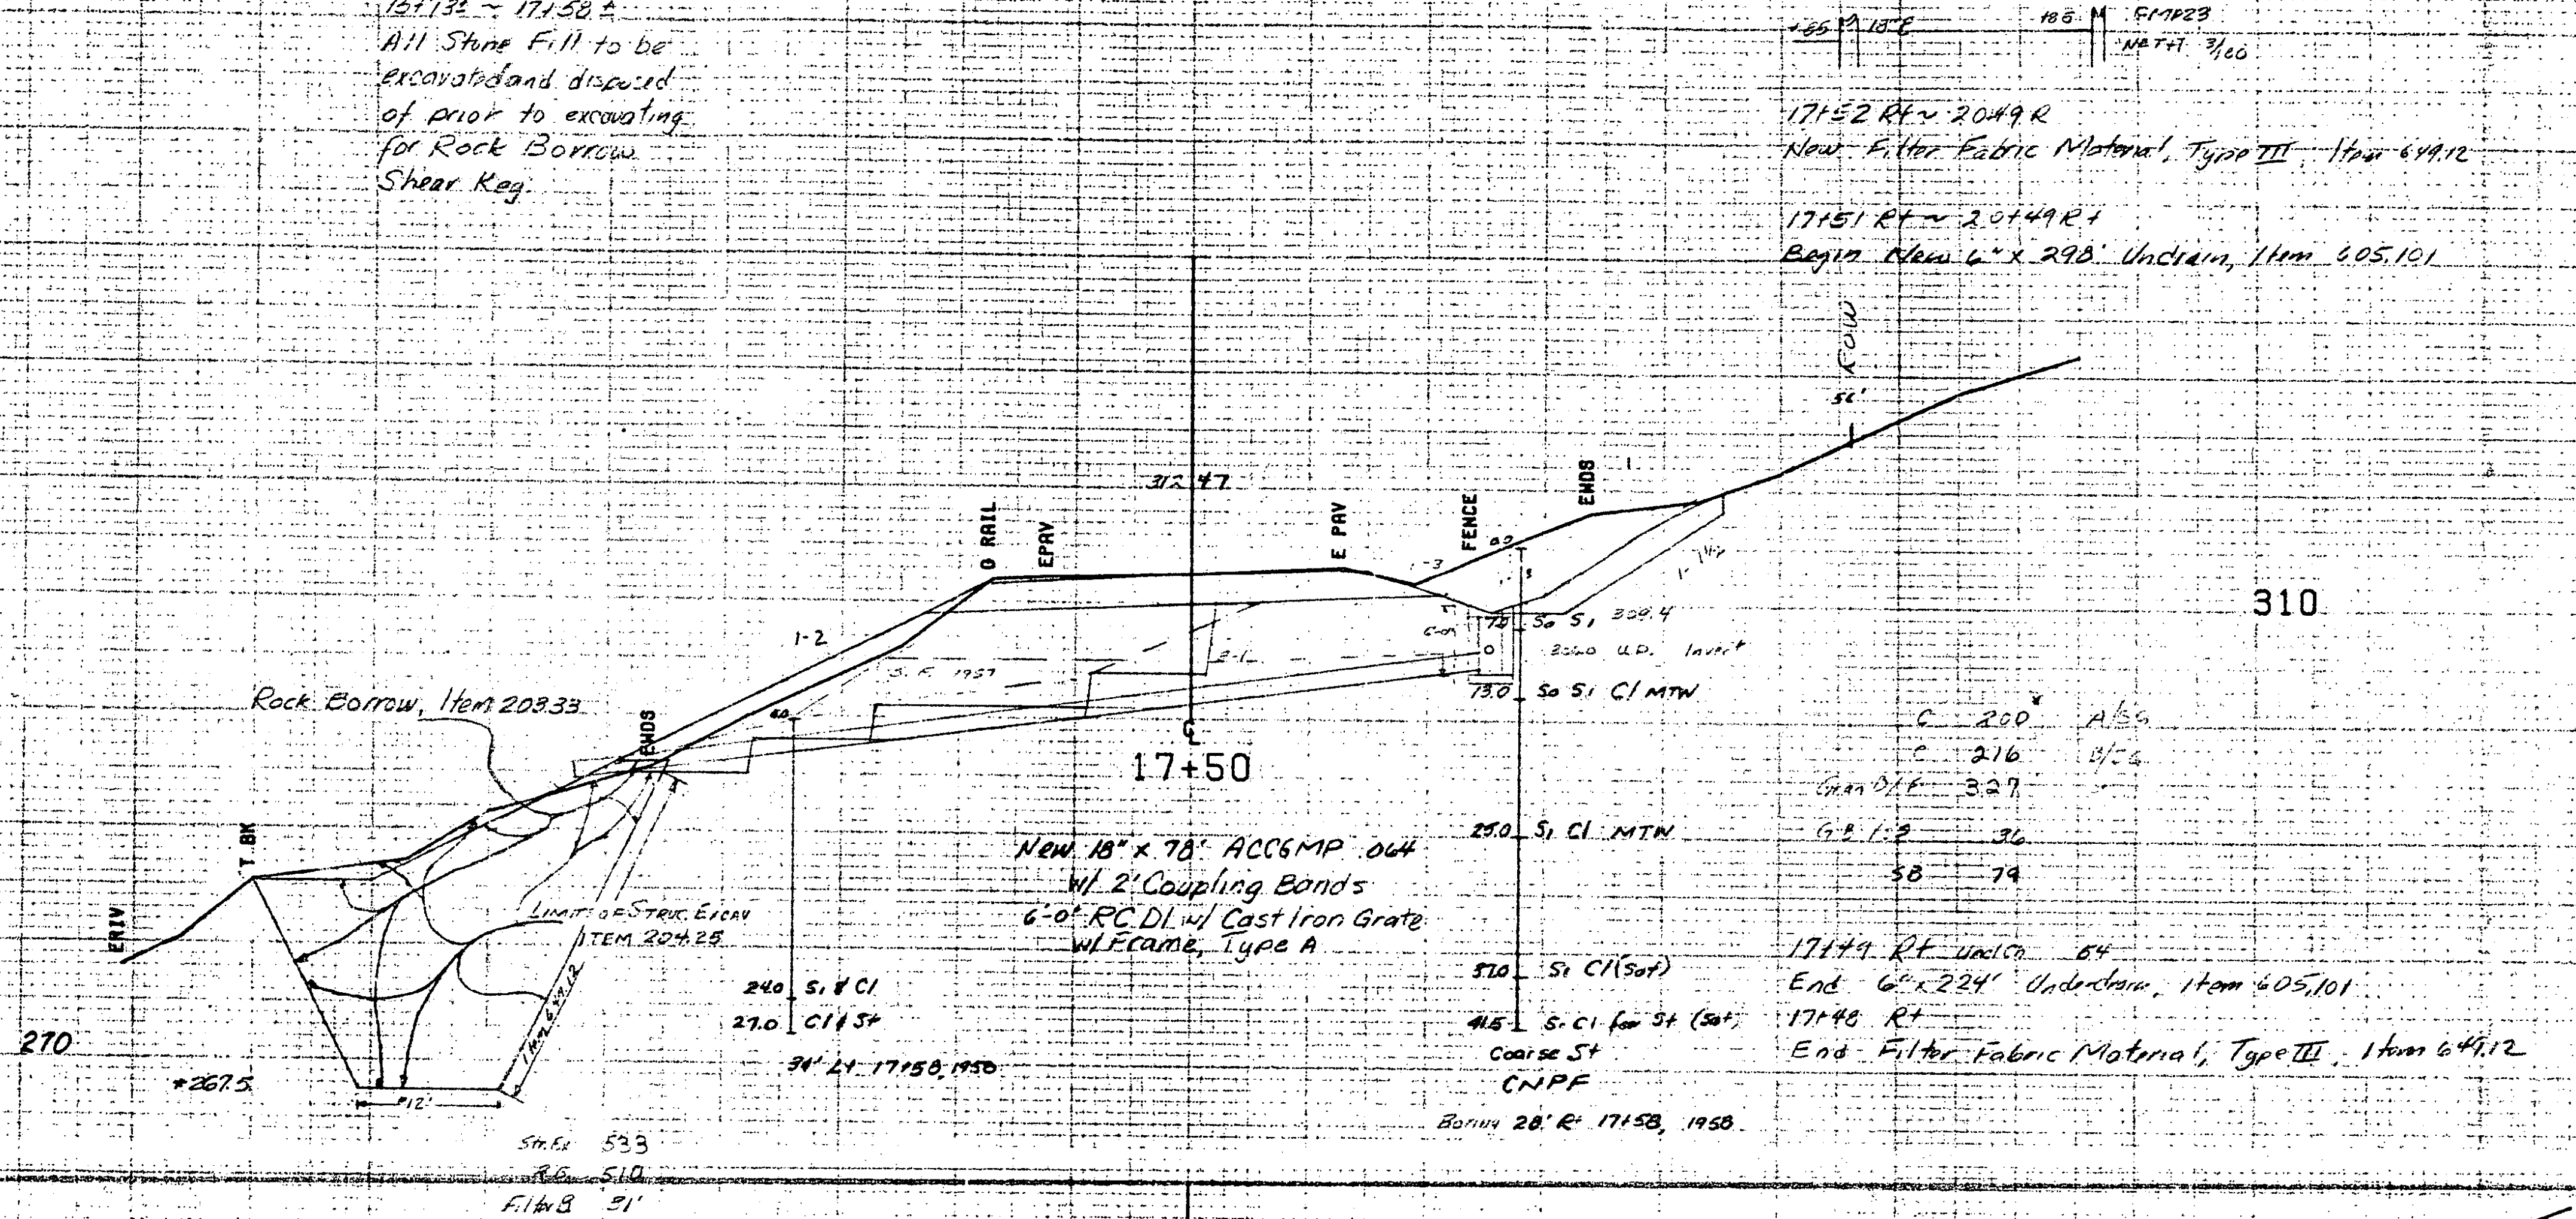 15+13± ~ 17+58±
All Stone Fill to be
excavated and disposed
of prior to excavating
for Rock Borrow
Shear Key.
+65 18"E
+86
3/60
17+52 Rt ~ 20+49 R
New Filter Fabric Material, Type III Item 649.12
17+51 Rt ~ 20+49 Rt
Begin New 6" x 298' Undrain, Item 605.101
ROW
56'
312.47
O RAIL
EPAV
E PAV
FENCE
EWDS
1-3
0.0
1-1½
310
1-2
7.0 So Si 309.4
U.D. Invert
2-1
S.F. 1957
13.0 So Si Cl MTW
Rock Borrow, Item 203.33
EWDS
0.0
C 200* A/SG
C 216 B/SG
Gran B/F 327
GB 1-2 36
SB 79
℄
17+50
25.0 Si Cl MTW
New 18" x 78' ACCGMP .064
w/ 2' Coupling Bands
6'-0" RC DI w/ Cast Iron Grate
w/ Frame, Type A
T BK
ERIV
LIMIT OF STRUC. EXCAV
ITEM 204.25
24.0 Si & Cl
27.0 Cl & St
34' Lt 17+58, 1958
37.0 Si Cl (Sat)
41.5 Si Cl few St (Sat)
Coarse St
CNPF
Boring 28' Rt 17+58, 1958
17+49 Rt 54
End 6" x 224' Underdrain, Item 605.101
17+48 Rt
End Filter Fabric Material, Type III, Item 649.12
270
*267.5
Item 649.12
*12'
Str. Ex 533
R.B. 510
Filter B 31'